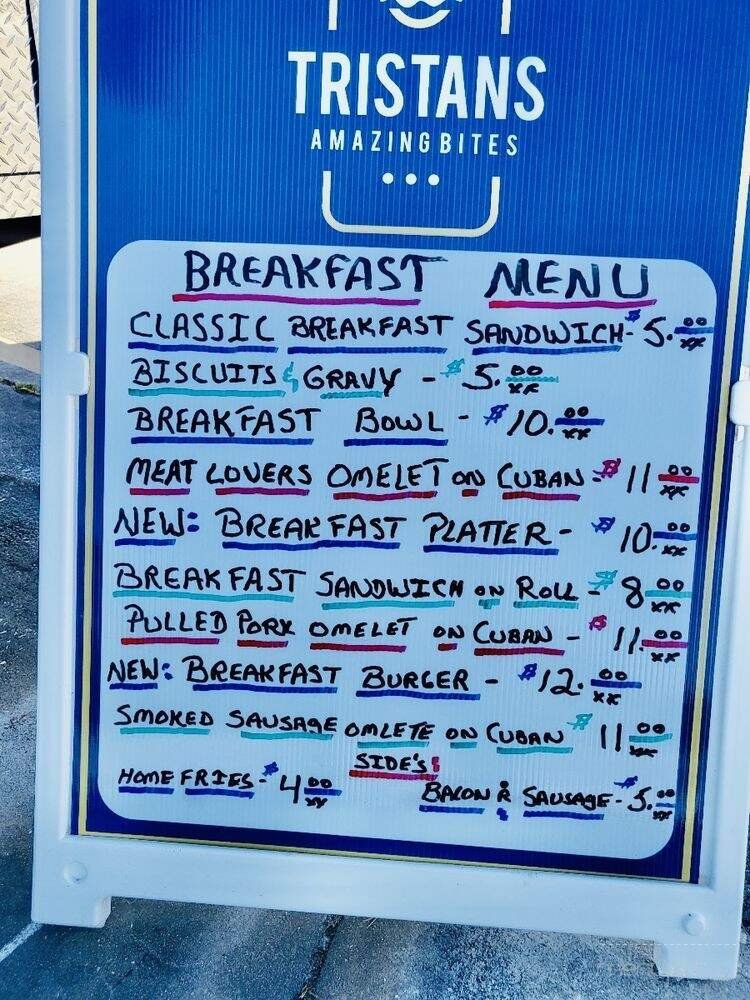 TRISTANS
AMAZING BITES
BREAKFAST MENU
CLASSIC BREAKFAST SANDWICH - $5.00/xx
BISCUITS & GRAVY - $5.00/xx
BREAKFAST BOWL - $10.00/xx
MEAT LOVERS OMELET ON CUBAN - $11 00/xx
NEW: BREAKFAST PLATTER - $10.00/xx
BREAKFAST SANDWICH ON ROLL - $8 00/xx
PULLED PORK OMELET ON CUBAN - $11.00/xx
NEW: BREAKFAST BURGER - $12.00/xx
SMOKED SAUSAGE OMLETE ON CUBAN $11 00/xx
SIDE'S:
HOME FRIES - $4 00/xx
BACON OR SAUSAGE - $5.00/xx